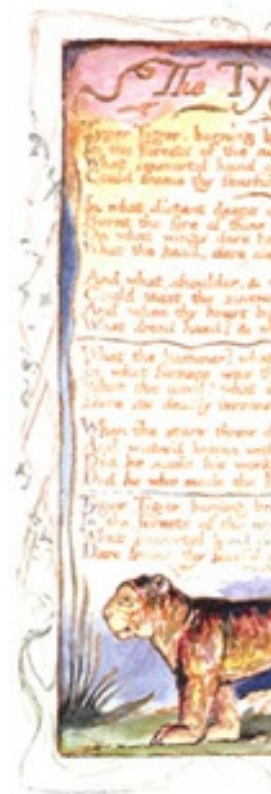 The Ty
Tyger Tyger, burning b
In the forests of the n
What immortal hand
Could frame thy fearful
In what distant deeps
Burnt the fire of thine
On what wings dare h
What the hand, dare
And what shoulder, &
Could twist the sinew
And when thy heart b
What dread hand? &
What the hammer? what
In what furnace was th
What the anvil? what
Dare its deadly terrors
When the stars threw d
And water'd heaven with
Did he smile his work
Did he who made the L
Tyger Tyger burning br
In the forests of the n
What immortal hand
Dare frame thy fearful